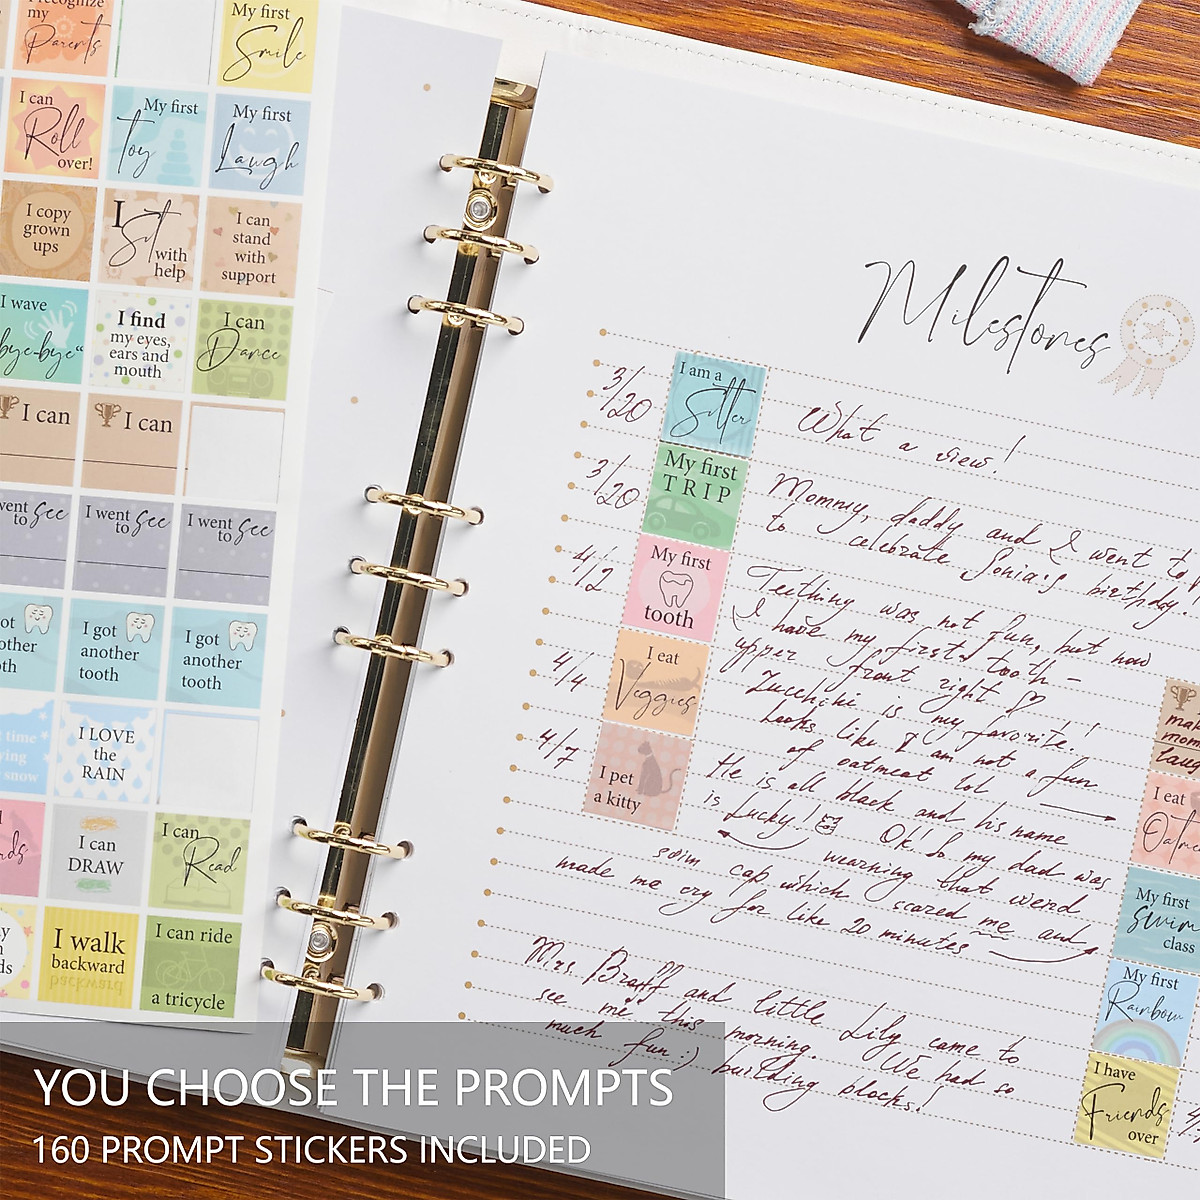 I recognize
my
Parents
My first
Smile
I can
Roll
over!
My first
toy
My first
Laugh
I copy
grown
ups
I
Sit
with
help
I can
stand
with
support
I wave
bye-bye“
I find
my eyes,
ears and
mouth
I can
Dance
I can
I can
went
to see
I went
to see
I went
to see
ot
other
oth
I got
another
tooth
I got
another
tooth
t time
ying
snow
I LOVE
the
RAIN
I can
DRAW
I can
Read
I walk
backward
backward
I can ride
a tricycle
Milestones
3/20
I am a
Sitter
What a view!
3/20
My first
TRIP
Mommy, daddy and I went to
to celebrate Sonia's birthday!
4/2
My first
tooth
Teething was not fun, but now
I have my first tooth –
upper front right
4/4
I eat
Veggies
Zucchini is my favorite!
Looks like I am not a fun
of oatmeat lol
4/7
I pet
a kitty
He is all black and his name
is Lucky!
OK! So my dad was
wearning that weird
swim cap which scared me and
made me cry for like 20 minutes
Mrs. Braff and little Lily came to
see me this morning. We had so
much fun :) building blocks!
mak
mom
laug
I eat
Oatme
My first
swim
class
My first
Rainbow
I have
Friends
over
YOU CHOOSE THE PROMPTS
160 PROMPT STICKERS INCLUDED